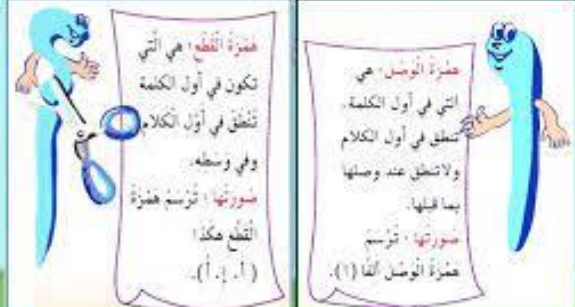 هَمْزَةُ الْوَصْل: هي
التي في أول الكلمة،
تنطق في أول الكلام
ولا تنطق عند وصلها
بما قبلها.
صورتها: تُرْسَم
هَمْزَةُ الْوَصْل أَلفًا (ا).
هَمْزَةُ الْقَطْع: هي الَّتي
تكون في أول الكلمة
تُنْطَق في أوَّل الْكَلام
وفي وَسَطه.
صُورتُها: تُرْسَمُ هَمْزَةُ
الْقَطْع هكذا
(أ. إ. أُ).